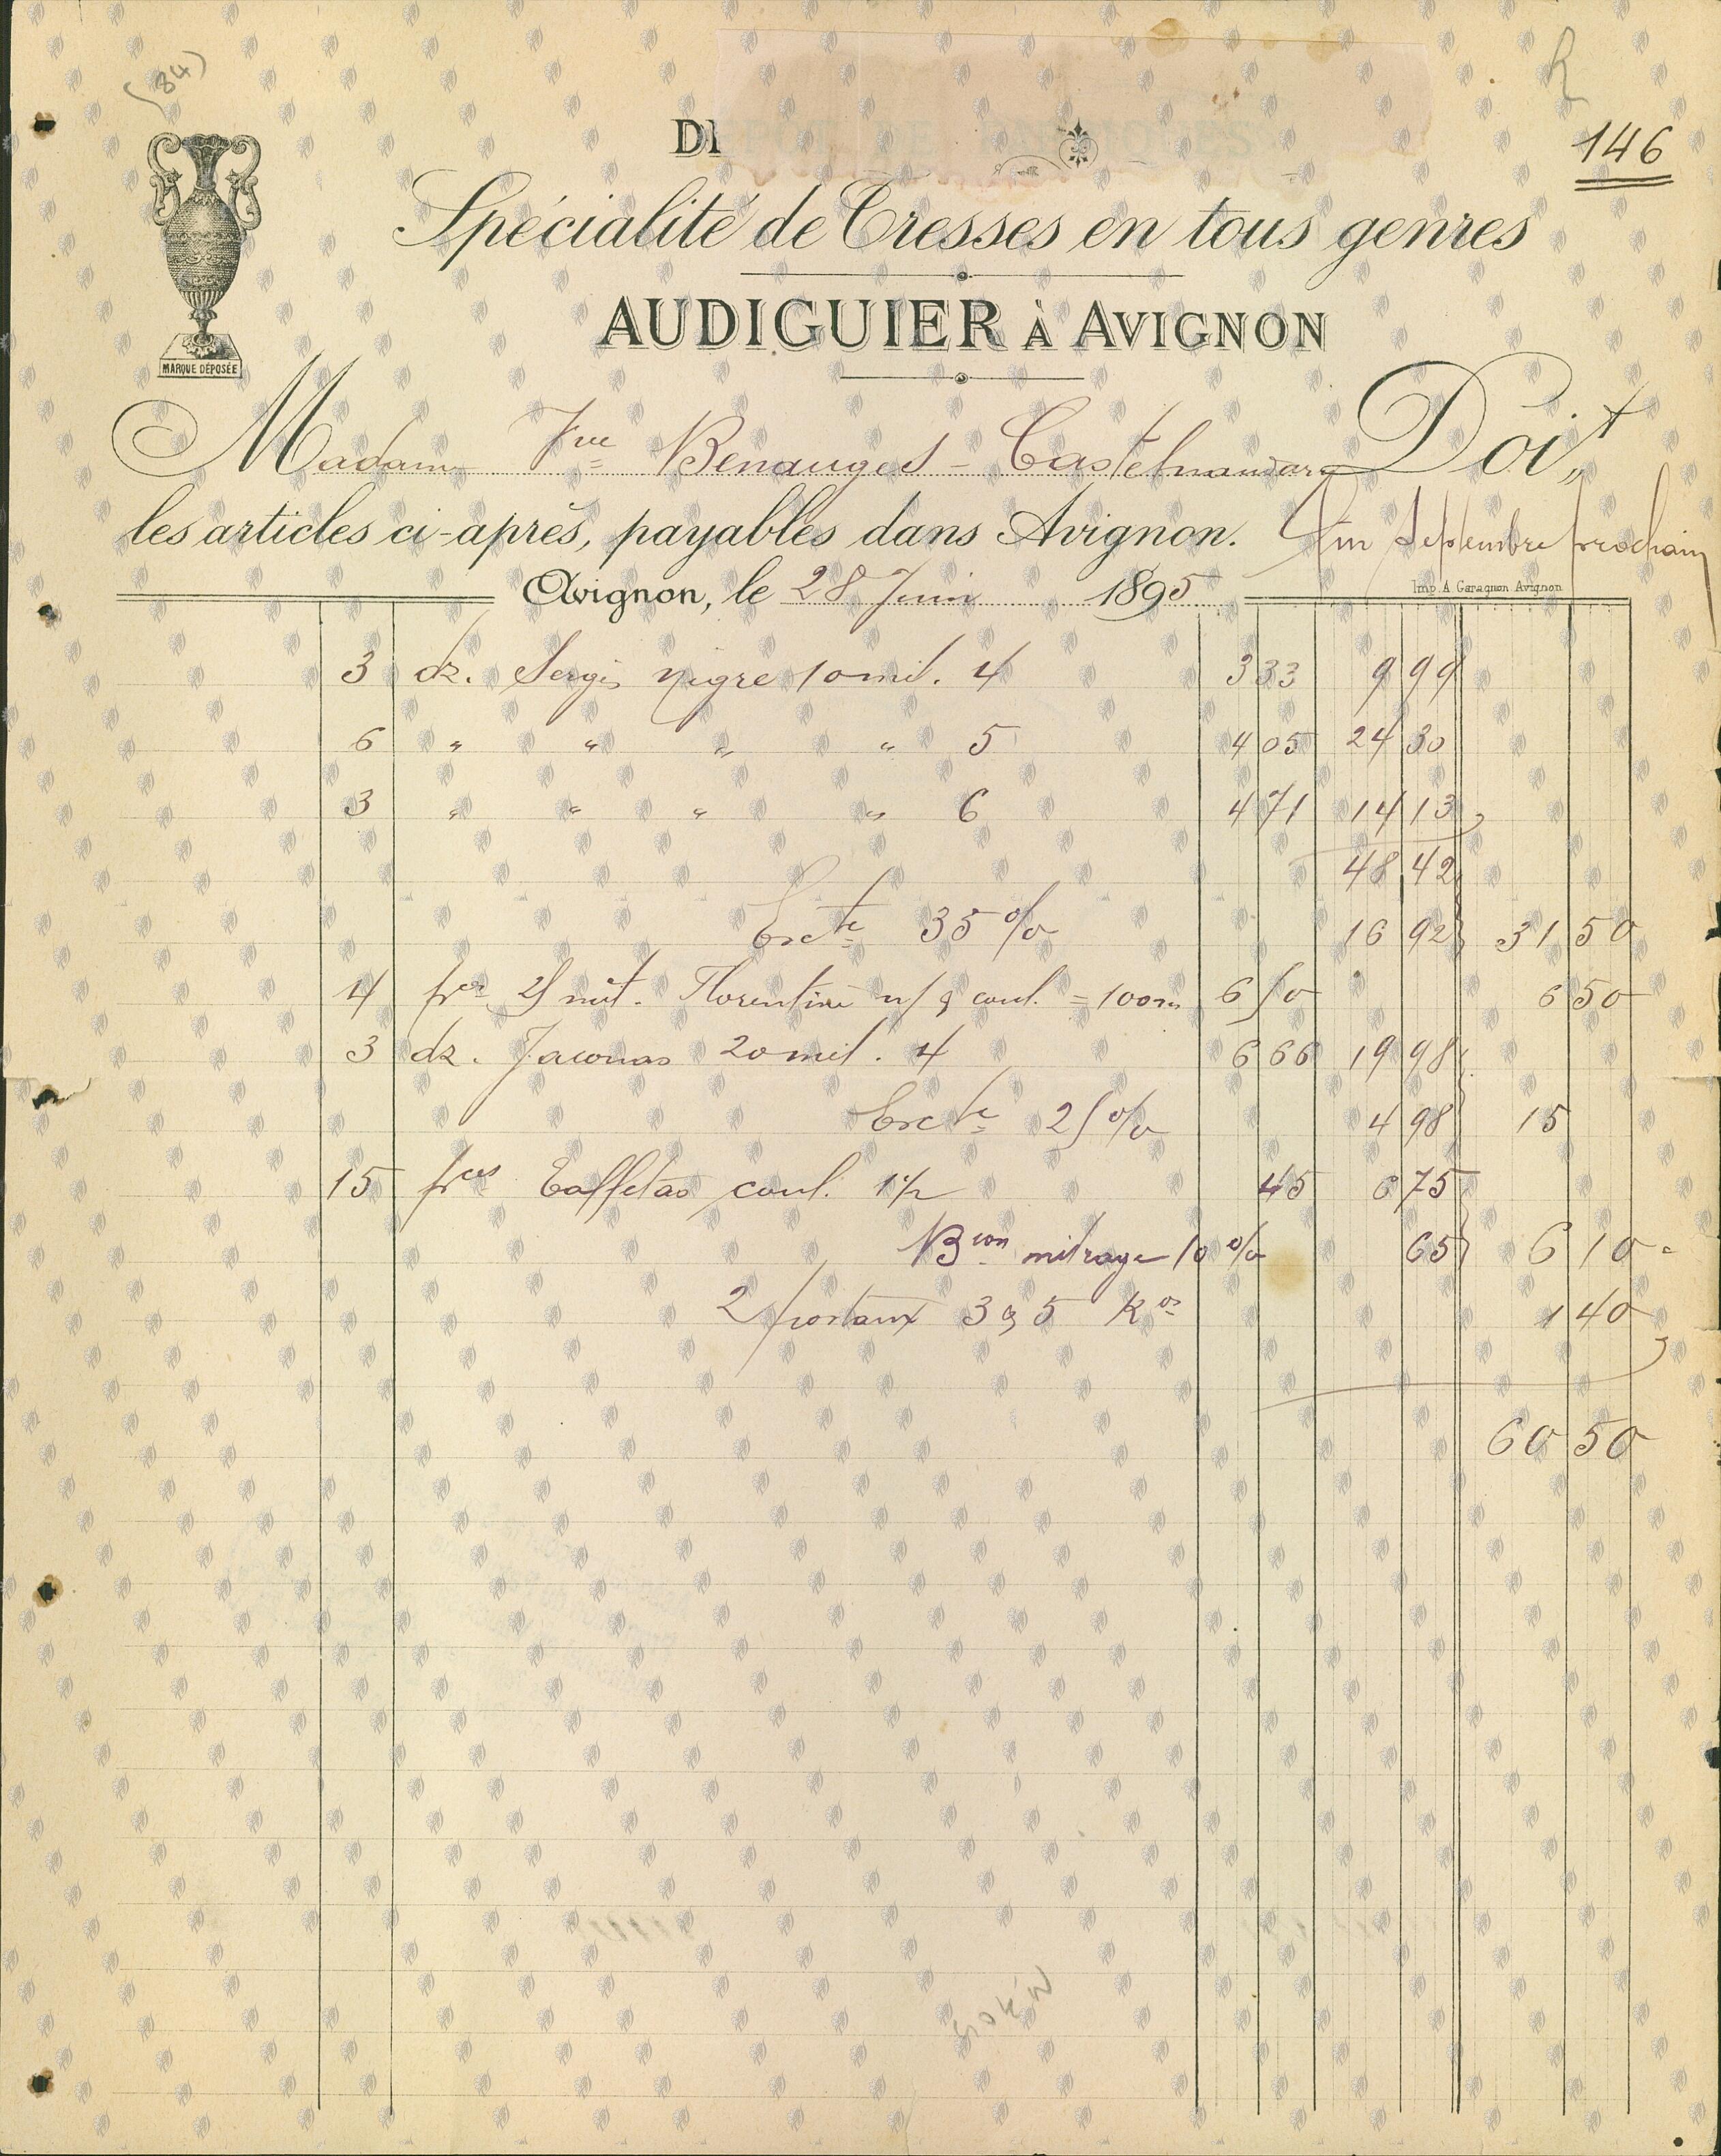 (84)
146
Spécialité de Tresses en tous genres
AUDIGUIER À AVIGNON
MARQUE DÉPOSÉE
Madame Vve Benauges - Castelnaudary Doit
les articles ci-après, payables dans Avignon. Fin Septembre prochain
Imp. A. Garagnon Avignon
Avignon, le 28 Juin 1895
3 dz. Sergis nigre 10 mil. 4 3 33 9 99
6 " " " " 5 4 05 24 30
3 " " " " 6 4 71 14 13
48 42
Escte 35 % 16 92 31 50
4 pces 25 mèt. Florentine n/ & coul. = 100 m 6 50 6 50
3 dz. Jaconas 20 mil. 4 6 66 19 98
Escte 25 % 4 98 15
15 pces Taffetas coul. 1 1/2 45 6 75
Bion métrage 10 % 65 6 10
2 postaux 3 & 5 Kos 1 40
60 50